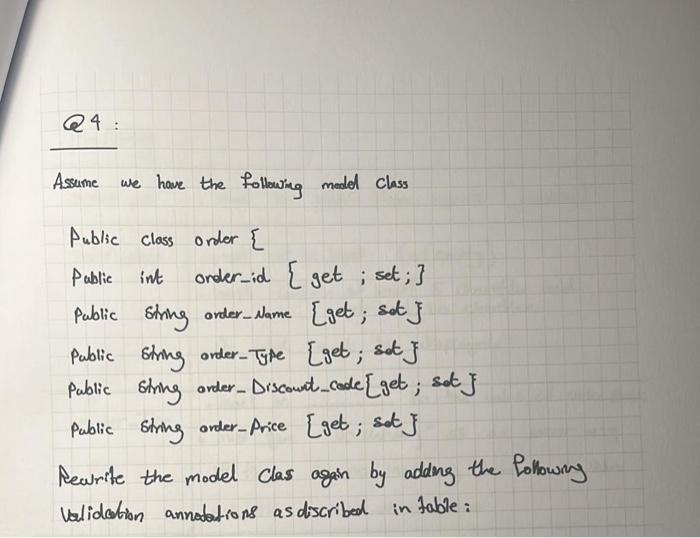 Q4 :
Assume we have the following model class
Public class order {
Public int order_id { get ; set ; }
Public String order_Name {get ; set }
Public String order_Type {get ; set }
Public String order_Discount_code {get ; set }
Public String order_Price {get ; set }
Rewrite the model clas again by adding the following
validation annotations as discribed in table :